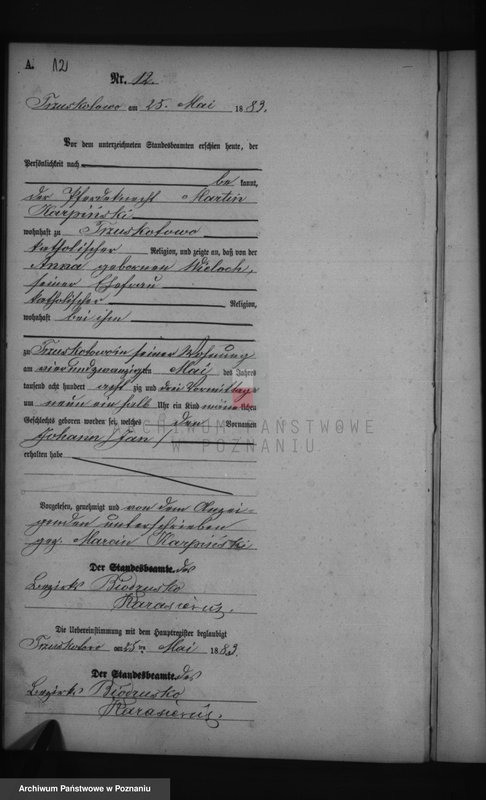 A. 12
Nr. 12.
Truskotowo am 25. Mai 1883.
Vor dem unterzeichneten Standesbeamten erschien heute, der
Persönlichkeit nach
be kannt,
der Pferdeknecht Martin
Karpiński
wohnhaft zu Truskotowo
katholischer Religion, und zeigte an, daß von der
Anna geborenen Wieloch,
seiner Ehefrau
katholischer Religion,
wohnhaft bei ihm
zu Truskotowo in seiner Wohnung
am vierundzwanzigten Mai des Jahres
tausend acht hundert acht zig und drei Vormittags
um neun ein halb Uhr ein Kind männ lichen
Geschlechts geboren worden sei, welches den Vornamen
Johann /Jan/
erhalten habe
ARCHIWUM PAŃSTWOWE
W POZNANIU
Vorgelesen, genehmigt und von dem Anzei-
genden unterschrieben
gez. Marcin Karpiński
Der Standesbeamte. des
Bezirks Biedrusko
Die Uebereinstimmung mit dem Hauptregister beglaubigt
Truskotowo am 25 ten Mai 1883.
Der Standesbeamte. des
Bezirks Biedrusko
Archiwum Państwowe w Poznaniu